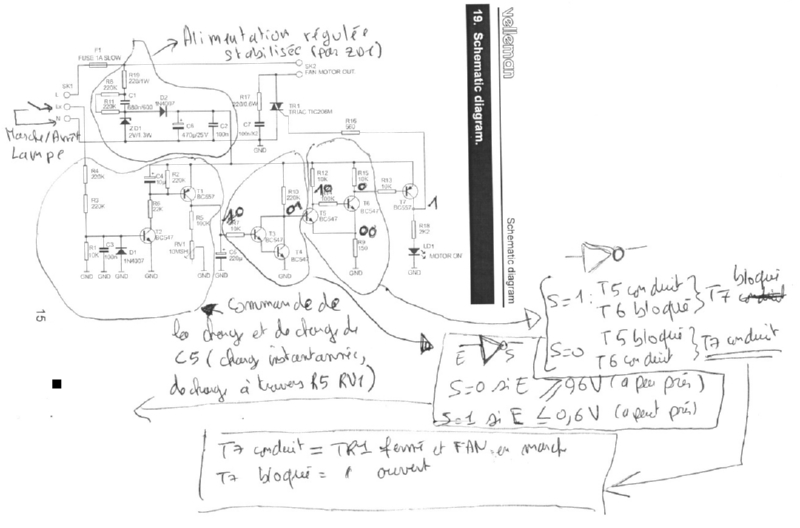 velleman
19. Schematic diagram.
Schematic diagram
15
Alimentation régulée
stabilisée (par ZD1)
F1
FUSE 1A SLOW
SK2
FAN MOTOR OUT
SK1
L
N
Marche/Arrêt
Lampe
R16
220/1W
R6
220K
R11
220K
C1
D2
1N4007
ZD1
C6
470µ/25V
C2
100n
R17
220/0.6W
C7
TR1
TRIAC TIC206M
GND
R16
560
R4
R3
220K
R1
10K
C3
100n
D1
1N4007
GND
GND
GND
C4
10µ
R2
220K
R8
T2
BC547
GND
T1
BC557
R5
RV1
GND
C5
220µ
GND
10
10K
T3
BC547
T4
BC547
R10
220K
01
GND
R12
10K
10
100K
T5
BC547
R15
10K
0
T6
BC547
00
R9
150
GND
R13
10K
T7
BC557
1
R18
2K2
LD1
MOTOR ON
GND
commande de
la charge et décharge de
C5 (charge instantannée,
decharge à travers R5 RV1)
S=1: T5 conduit
T6 bloqué
T7 bloqué
S=0 T5 bloqué
T6 conduit
T7 conduit
E S
S=0 si E ≥ 0,6V (a peu près)
S=1 si E ≤ 0,6V (a peut près)
T7 conduit = TR1 fermé et FAN en march
T7 bloqué = ouvert